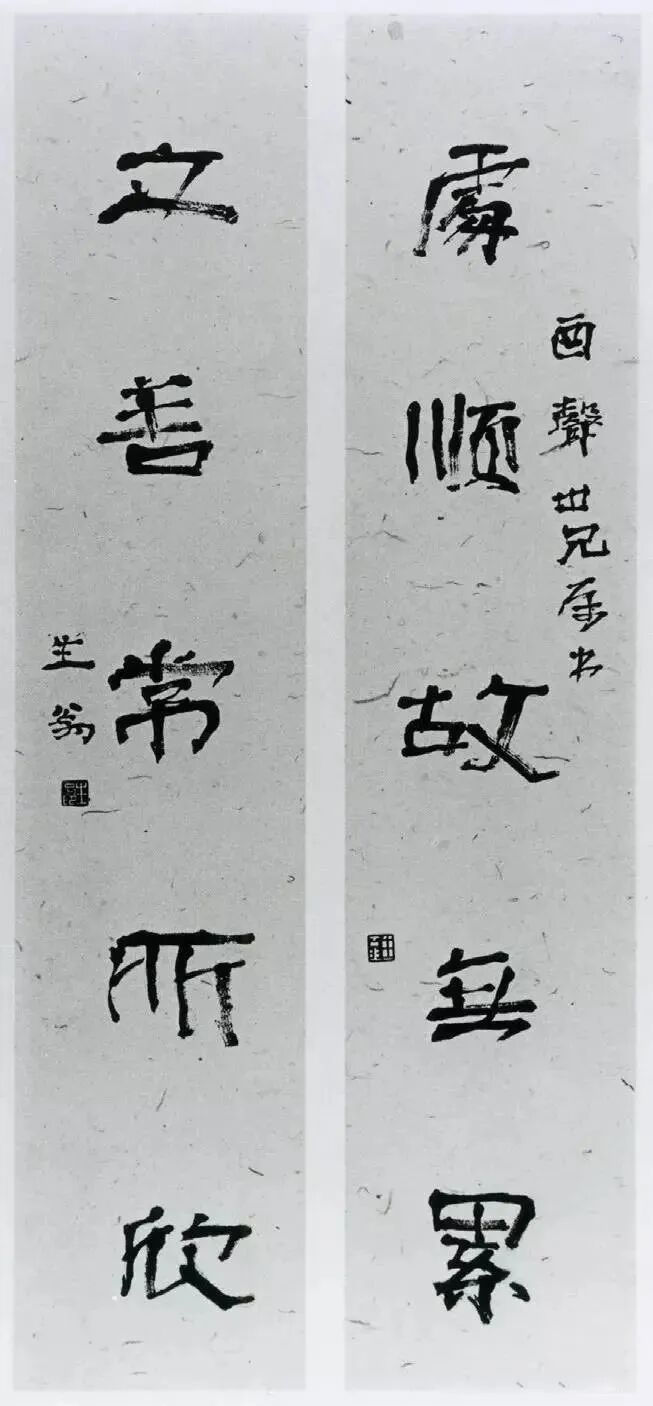 處順故無累
酉聲世兄属书
立善常所欣
生翁